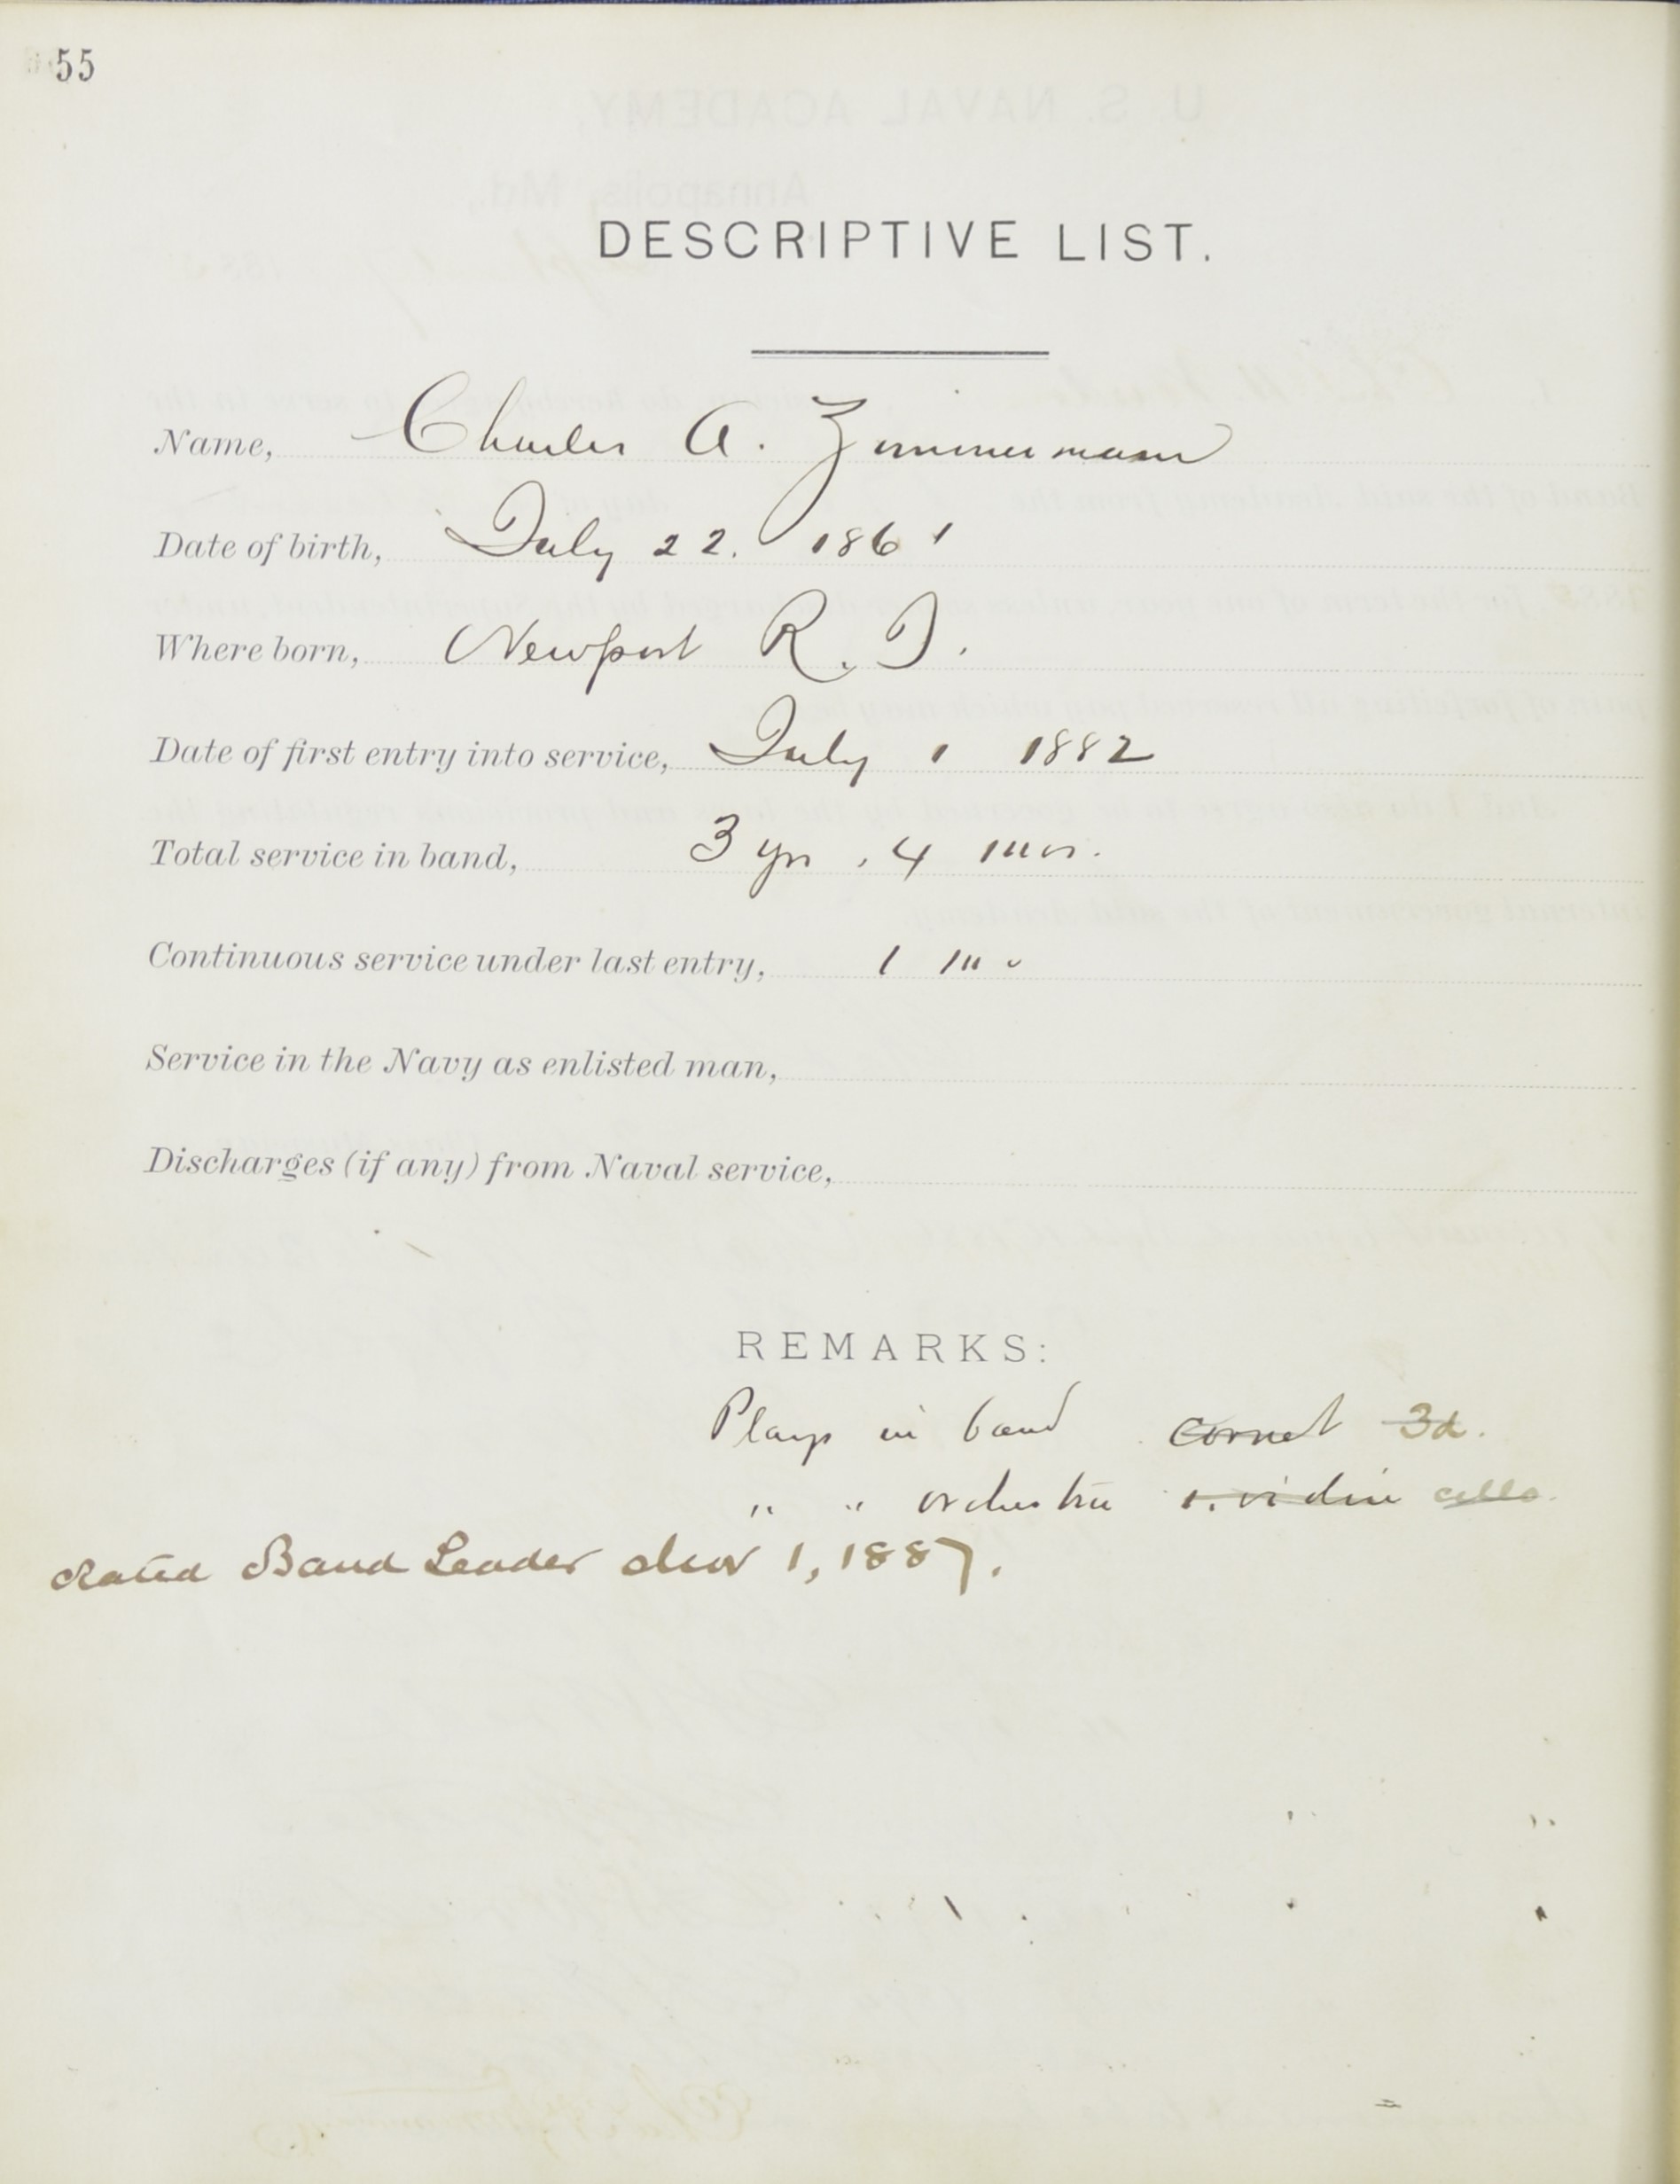 55
DESCRIPTIVE LIST.
Name, Charles A. Zimmermann
Date of birth, July 22. 1861
Where born, Newport R. I.
Date of first entry into service, July 1 1882
Total service in band, 3 yrs, 4 mos.
Continuous service under last entry, 1 mo
Service in the Navy as enlisted man,
Discharges (if any) from Naval service,
REMARKS:
Plays in band cornet 3d.
" " orchestra 1. violin cello.
Rated Band Leader Nov 1, 1887.